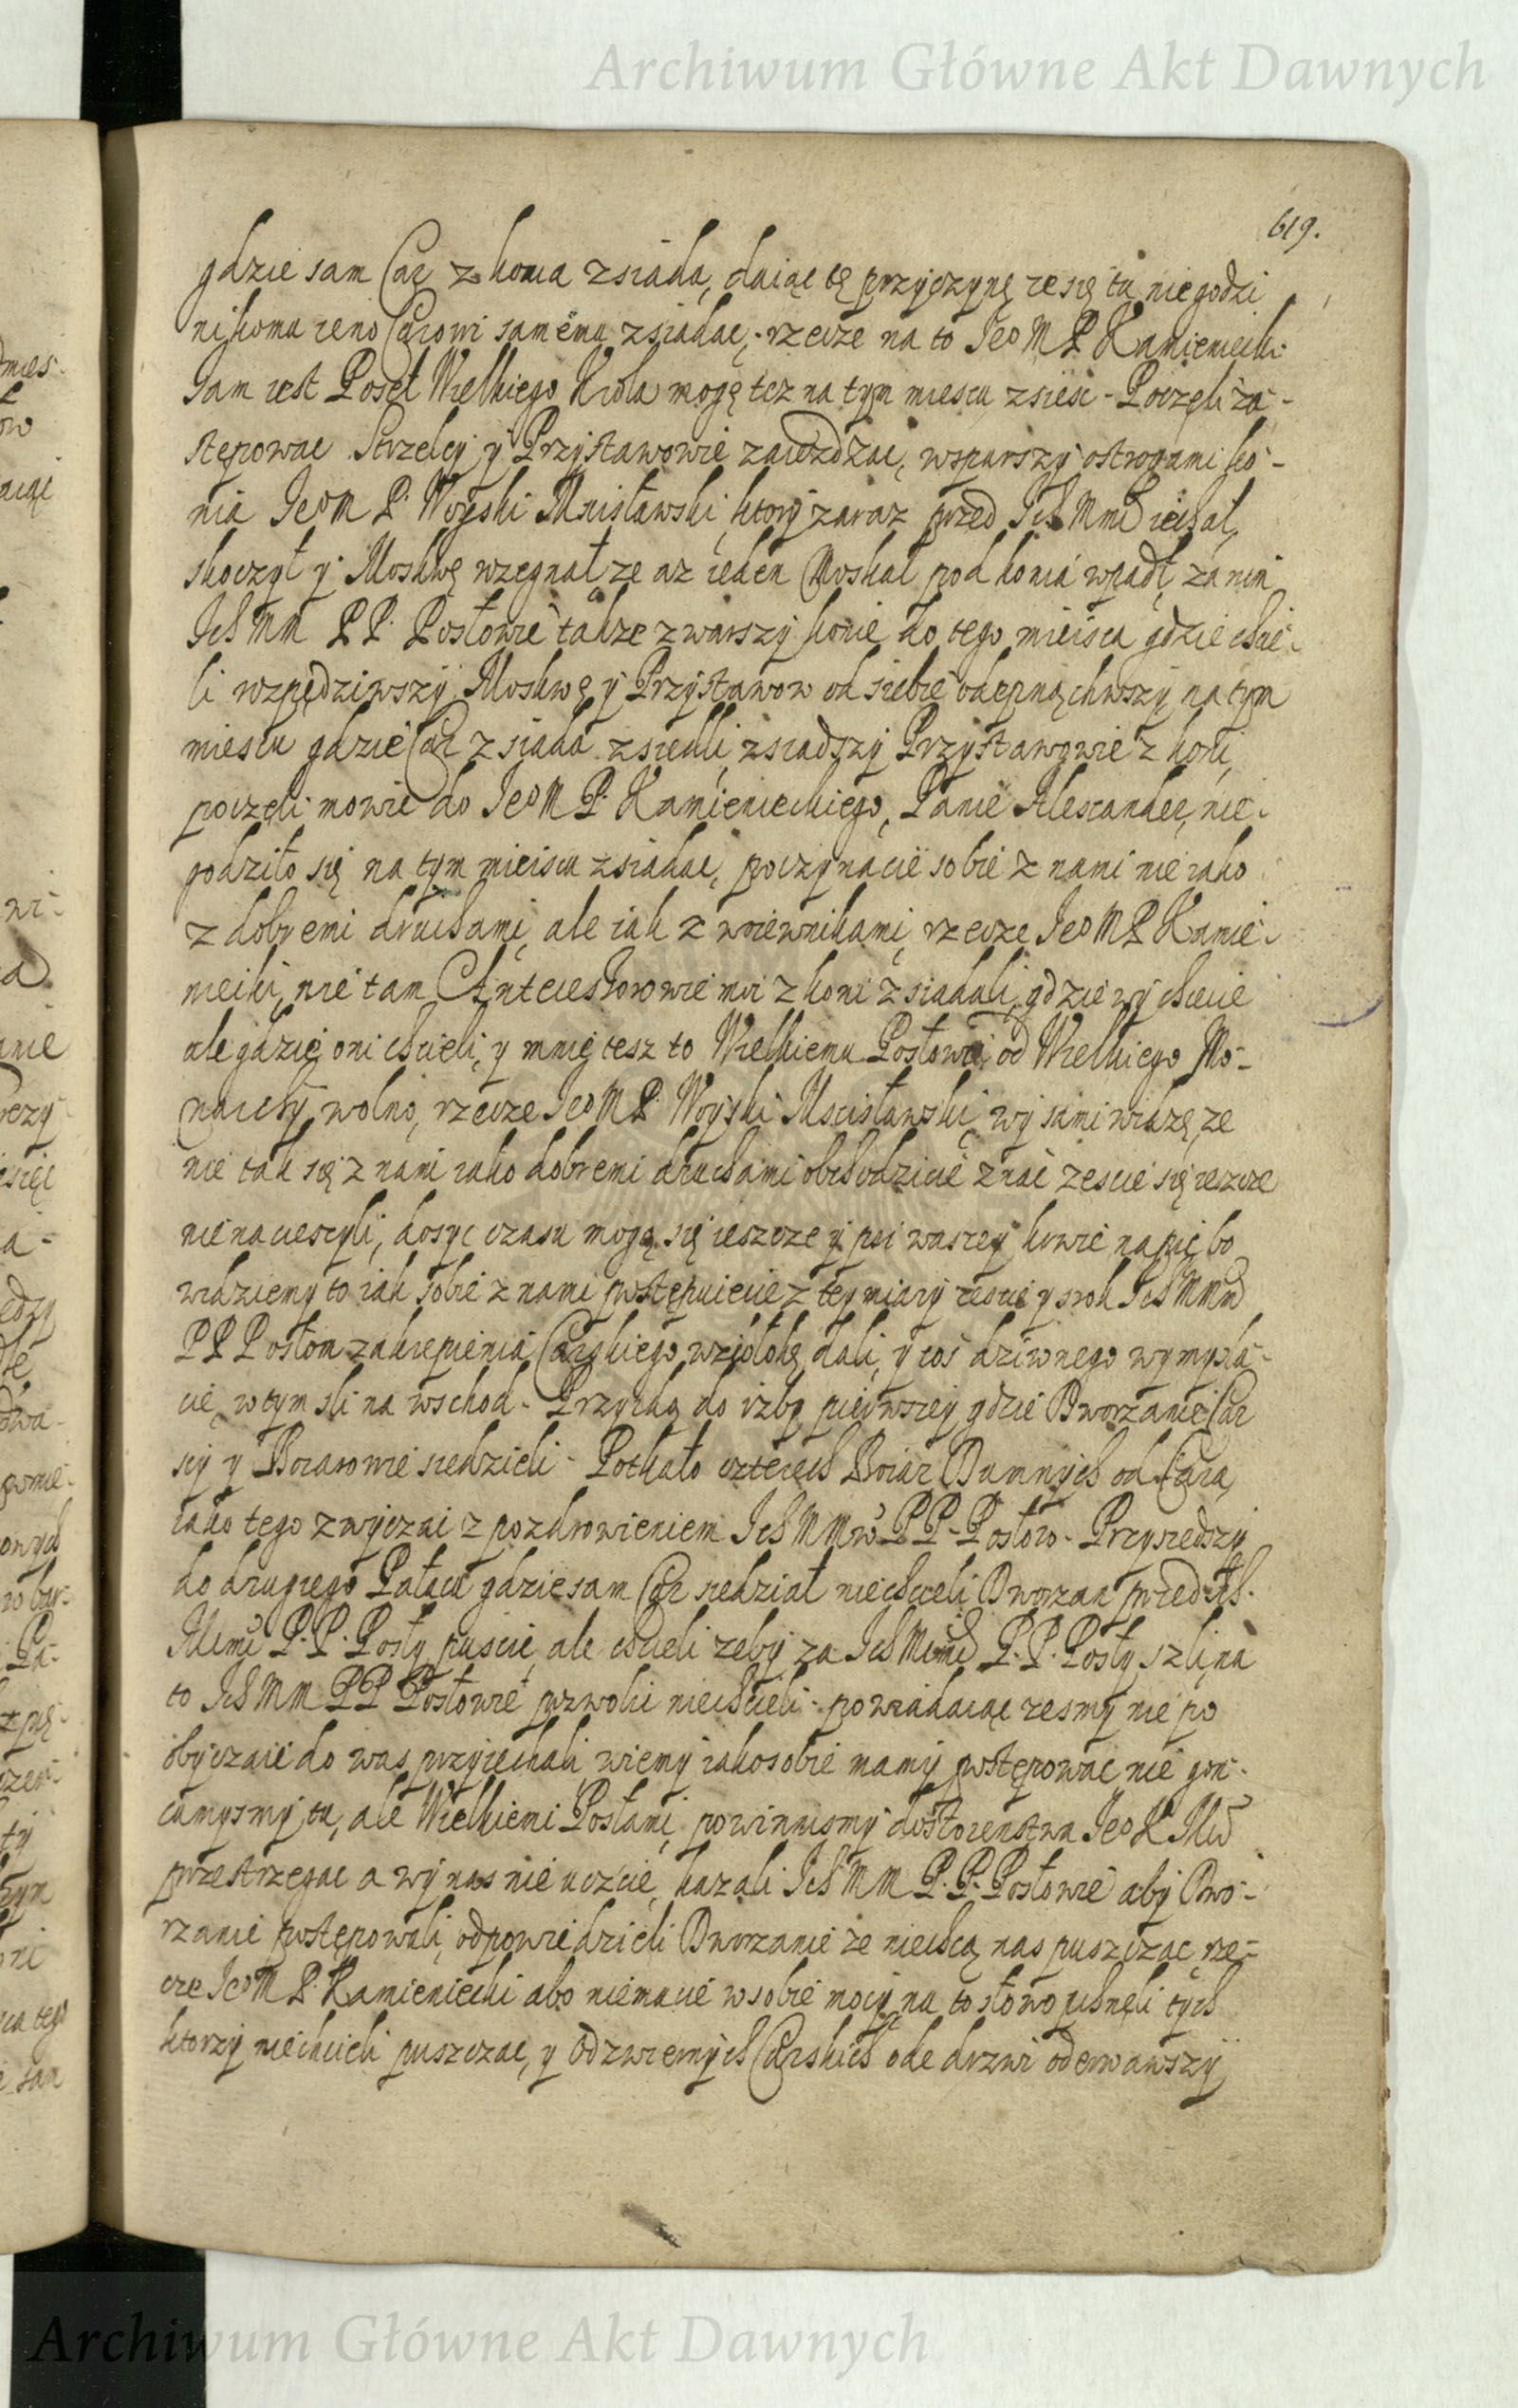 Archiwum Główne Akt Dawnych
619.
gdzie sam Car z konia zsiada, daiąc tę przyczynę ze się tu niegodzi
nikomu ieno Carowi samemu zsiadac, rzecze na to Jeo M P Kamieniecki
Jam iest Poseł Wielkiego Krola mogę tez na tym miescu zsiesc - Poczęli za-
stępowac Strzelcy y Przystawowie zaiezdzac, wsparszy ostrogami ko-
nia Jeo M P. Woyski Mscisławski, ktory zaraz przed Ich Mmci iechał,
skoczył y Moskwę rozegnał ze az ieden Moskal pod konia wpadł, za nim
Ich MM PP. Posłowie takze zwarszy konie do tego mieisca gdzie chcie-
li rozpędziwszy Moskwę y Przystawow od siebie odepchnąwszy na tym
miescu gdzie Car zsiada zsiedli, zsiadszy Przystawowie z koni,
poczęli mowic do Jeo M P. Kamienieckiego, Panie Alexander, nie-
godziło się na tym mieiscu zsiadac, poczynacie sobie z nami nie iako
z dobremi druchami, ale iak z woiewnikami, rzecze Jeo M P Kamie-
niecki, nie tam Antecessorowie moi z koni zsiadali, gdzie wy chcecie
ale gdzie oni chcieli, y mnie tesz to Wielkiemu Posłowi od Wielkiego Mo-
narchy wolno, rzecze Jeo M P. Woyski Mscisławski, wy sami widzę, ze
nie tak się z nami iako dobremi druchami obchodzicie znac zescie się ieszcze
nie nacieszyli, dosyc czasu mogą się ieszcze y psi waszey krwie napic bo
widziemy to iak sobie z nami postępuiecie z tey miary zescie y srok Ich MMm
PP Posłom zakrepienia Carskiego wzwłokę dali, y cos dziwnego wymysla-
cie, w tym sli na wschod - Przyidą do izby pierwszey gdzie Dworzanie Car
scy y Boiarowie siedzieli - Potkało czterech Boiar Dumnych od Cara,
iako tego zwyczai z pozdrowieniem Ich MMw PP - Posłow - Przyszedszy
do drugiego Pałacu gdzie sam Car siedział niechcieli Dworzan przed Ich
Mmci P. P. Posły puscic, ale chcieli zeby za Ich Mmmi P. P. Posły szli, na
to Ich MM PP Posłowie pozwolic niechcieli - powiadaiąc zesmy nie po
obyczaie do was przyiechali, wiemy iako sobie mamy postępowac nie gon-
camysmy tu, ale Wielkiemi Posłami, powinnismy dostoienstwa Jeo K Mci
przestrzegac a wy nas nie uczcie, kazali Ich MM P. P. Posłowie aby Dwo-
rzanie postępowali, odpowiedzieli Dworzanie ze niechcą nas puszczac, rze-
cze Jeo M P. Kamieniecki abo niemacie w sobie mocy, na to słowo pchnęli tych
ktorzy niechcieli puszczac, y Odzwiernych Carskich ode drzwi oderwawszy
Archiwum Główne Akt Dawnych